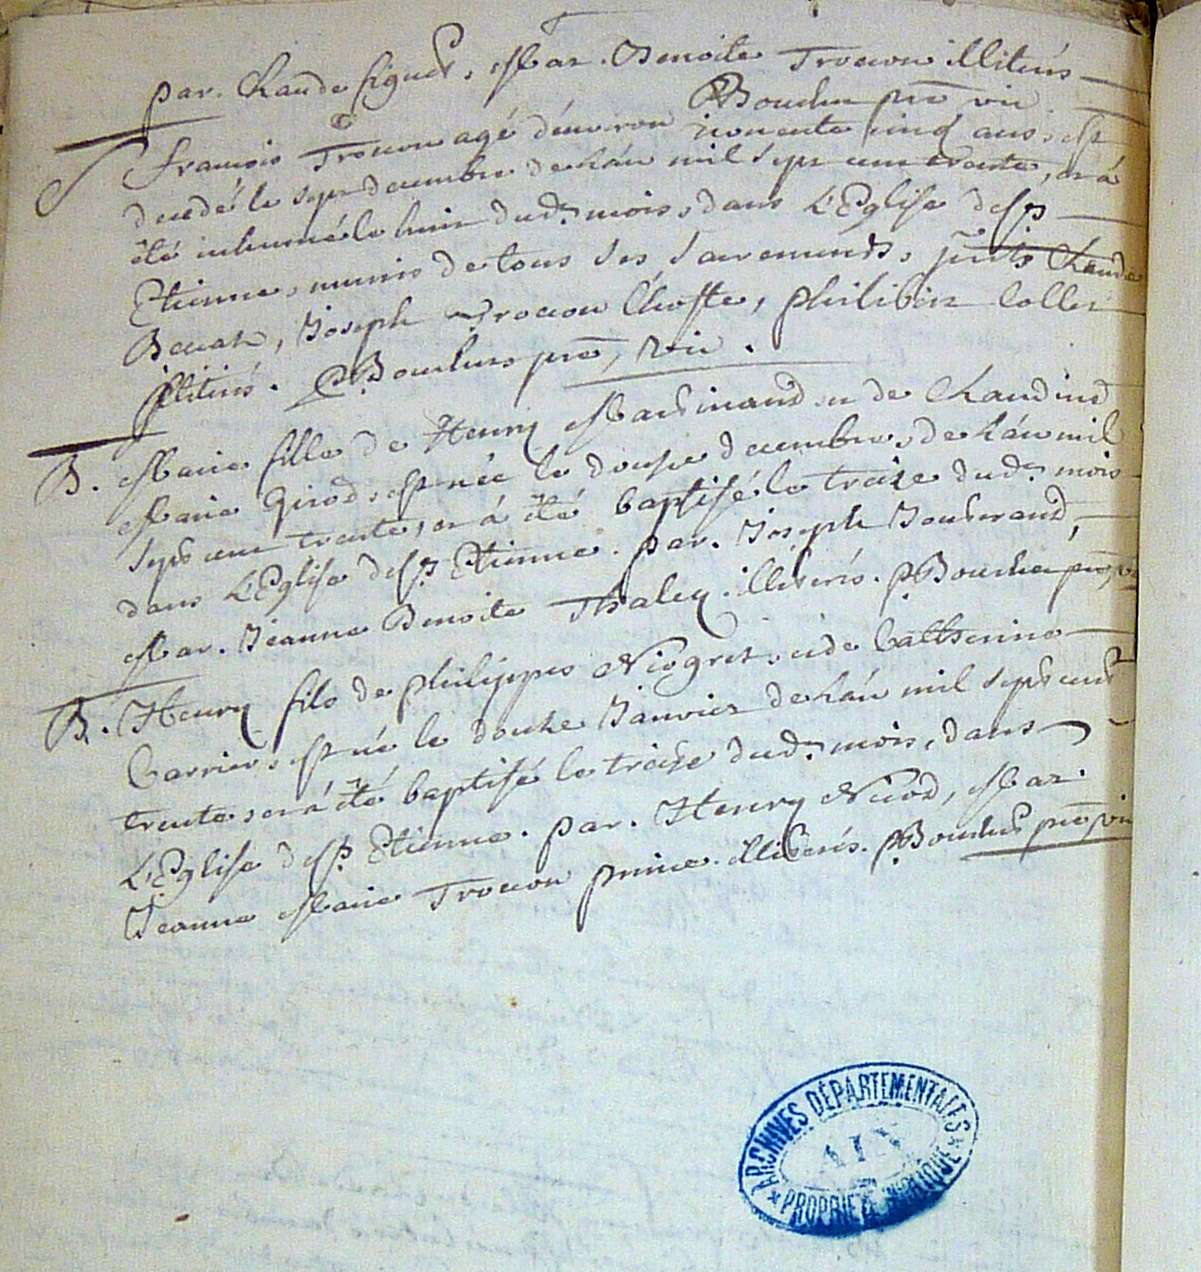 par. Claude Signet, Mar. Benoite Trocon illiterés
Bouchu pre vic.
françois Trocon agé d'environ nonente cinq ans, est
decedé le sept decembre de l'an mil sept cent trente, et a
été inhumé le huit dud. mois, dans L'Eglise de St
Etienne, munis de tous ses sacrements, pnts Claude
Joseph Trocon L'hoste, philibert Collet
illiterés. Bouchus pre, vic.
B. Marie fille de Henry Marchinand et de Claudine
Marie Girod, est née le douse decembre, de l'an mil
sept cent trente, et a été baptisé le treize dud. mois
dans L'Eglise de St Etienne. par. Joseph Jouvrand,
Mar. Jeanne Benoite Thaley illiterés. Bouchu pre, vic
B. Henry fils de philippes Niogret, et de Catherine
Carrier, est né le douze Janvier de l'an mil sept cent
trente, et a été baptisé le treize dud. mois, dans
L'Eglise de St Etienne. par. Henry Nicod, Mar.
Jeanne Marie Trocon prince. illiterés. Bouchus pre vic
ARCHIVES DÉPARTEMENTALES
AIN
PROPRIÉTÉ PUBLIQUE